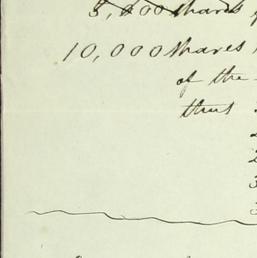 5,000 shares
10,000 shares
of the
thus
2
3
3